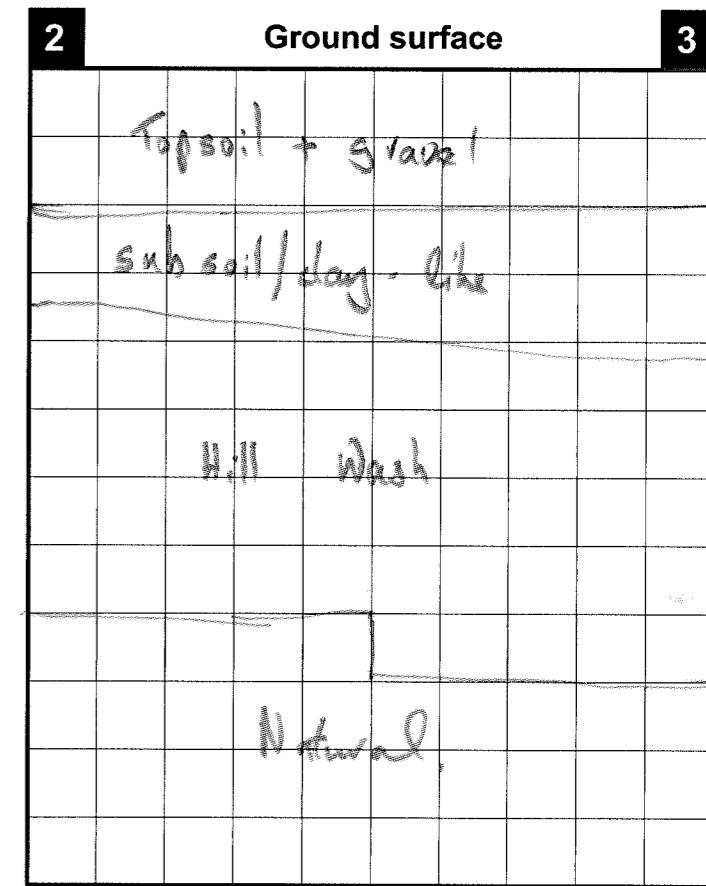 2 Ground surface 3
Topsoil + gravel
subsoil/clay-like
Hill Wash
Natural.